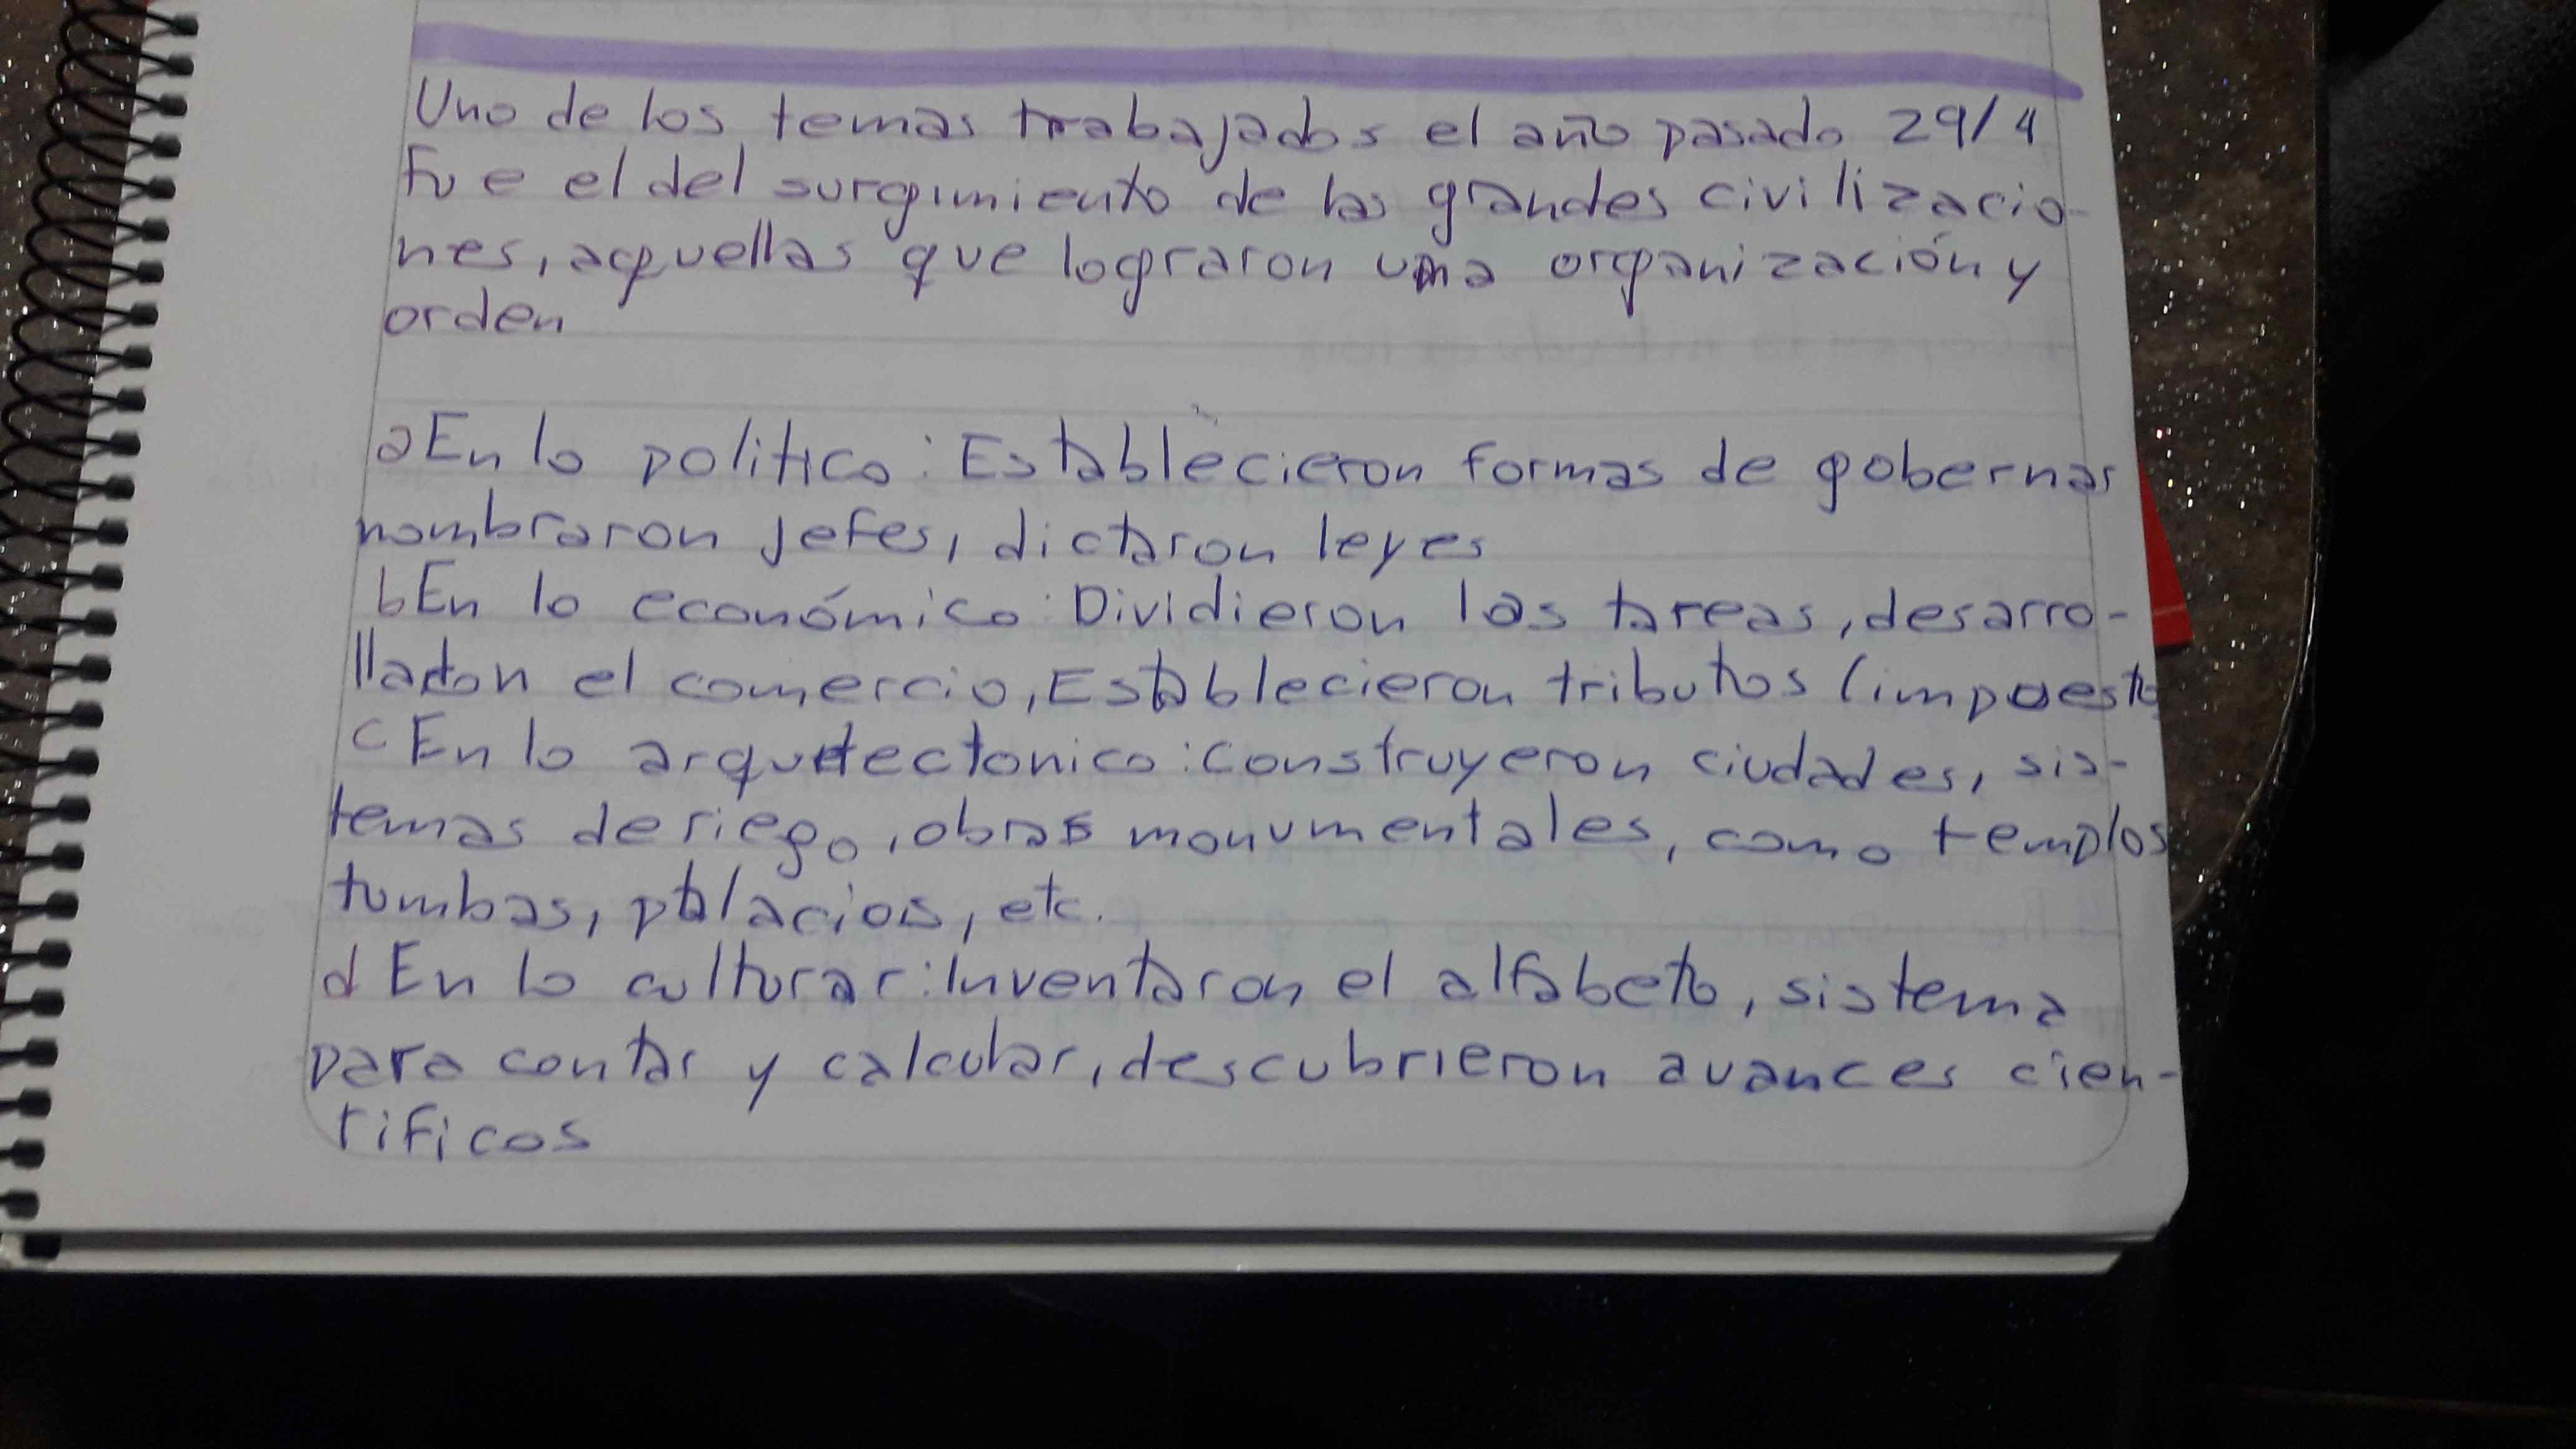 Uno de los temas trabajados el año pasado 29/4
fue el del surgimiento de las grandes civilizacio-
nes, aquellas que lograron una organización y
orden
a En lo politico: Establecieron formas de gobernar
nombraron jefes, dictaron leyes
b En lo económico: Dividieron las tareas, desarro-
llaron el comercio, Establecieron tributos (impuesto
c En lo arquitectonico: Construyeron ciudades, sis-
temas de riego, obras monumentales, como templos
tumbas, palacios, etc.
d En lo culturar: Inventaron el alfabeto, sistema
para contar y calcular, descubrieron avances cien-
tificos